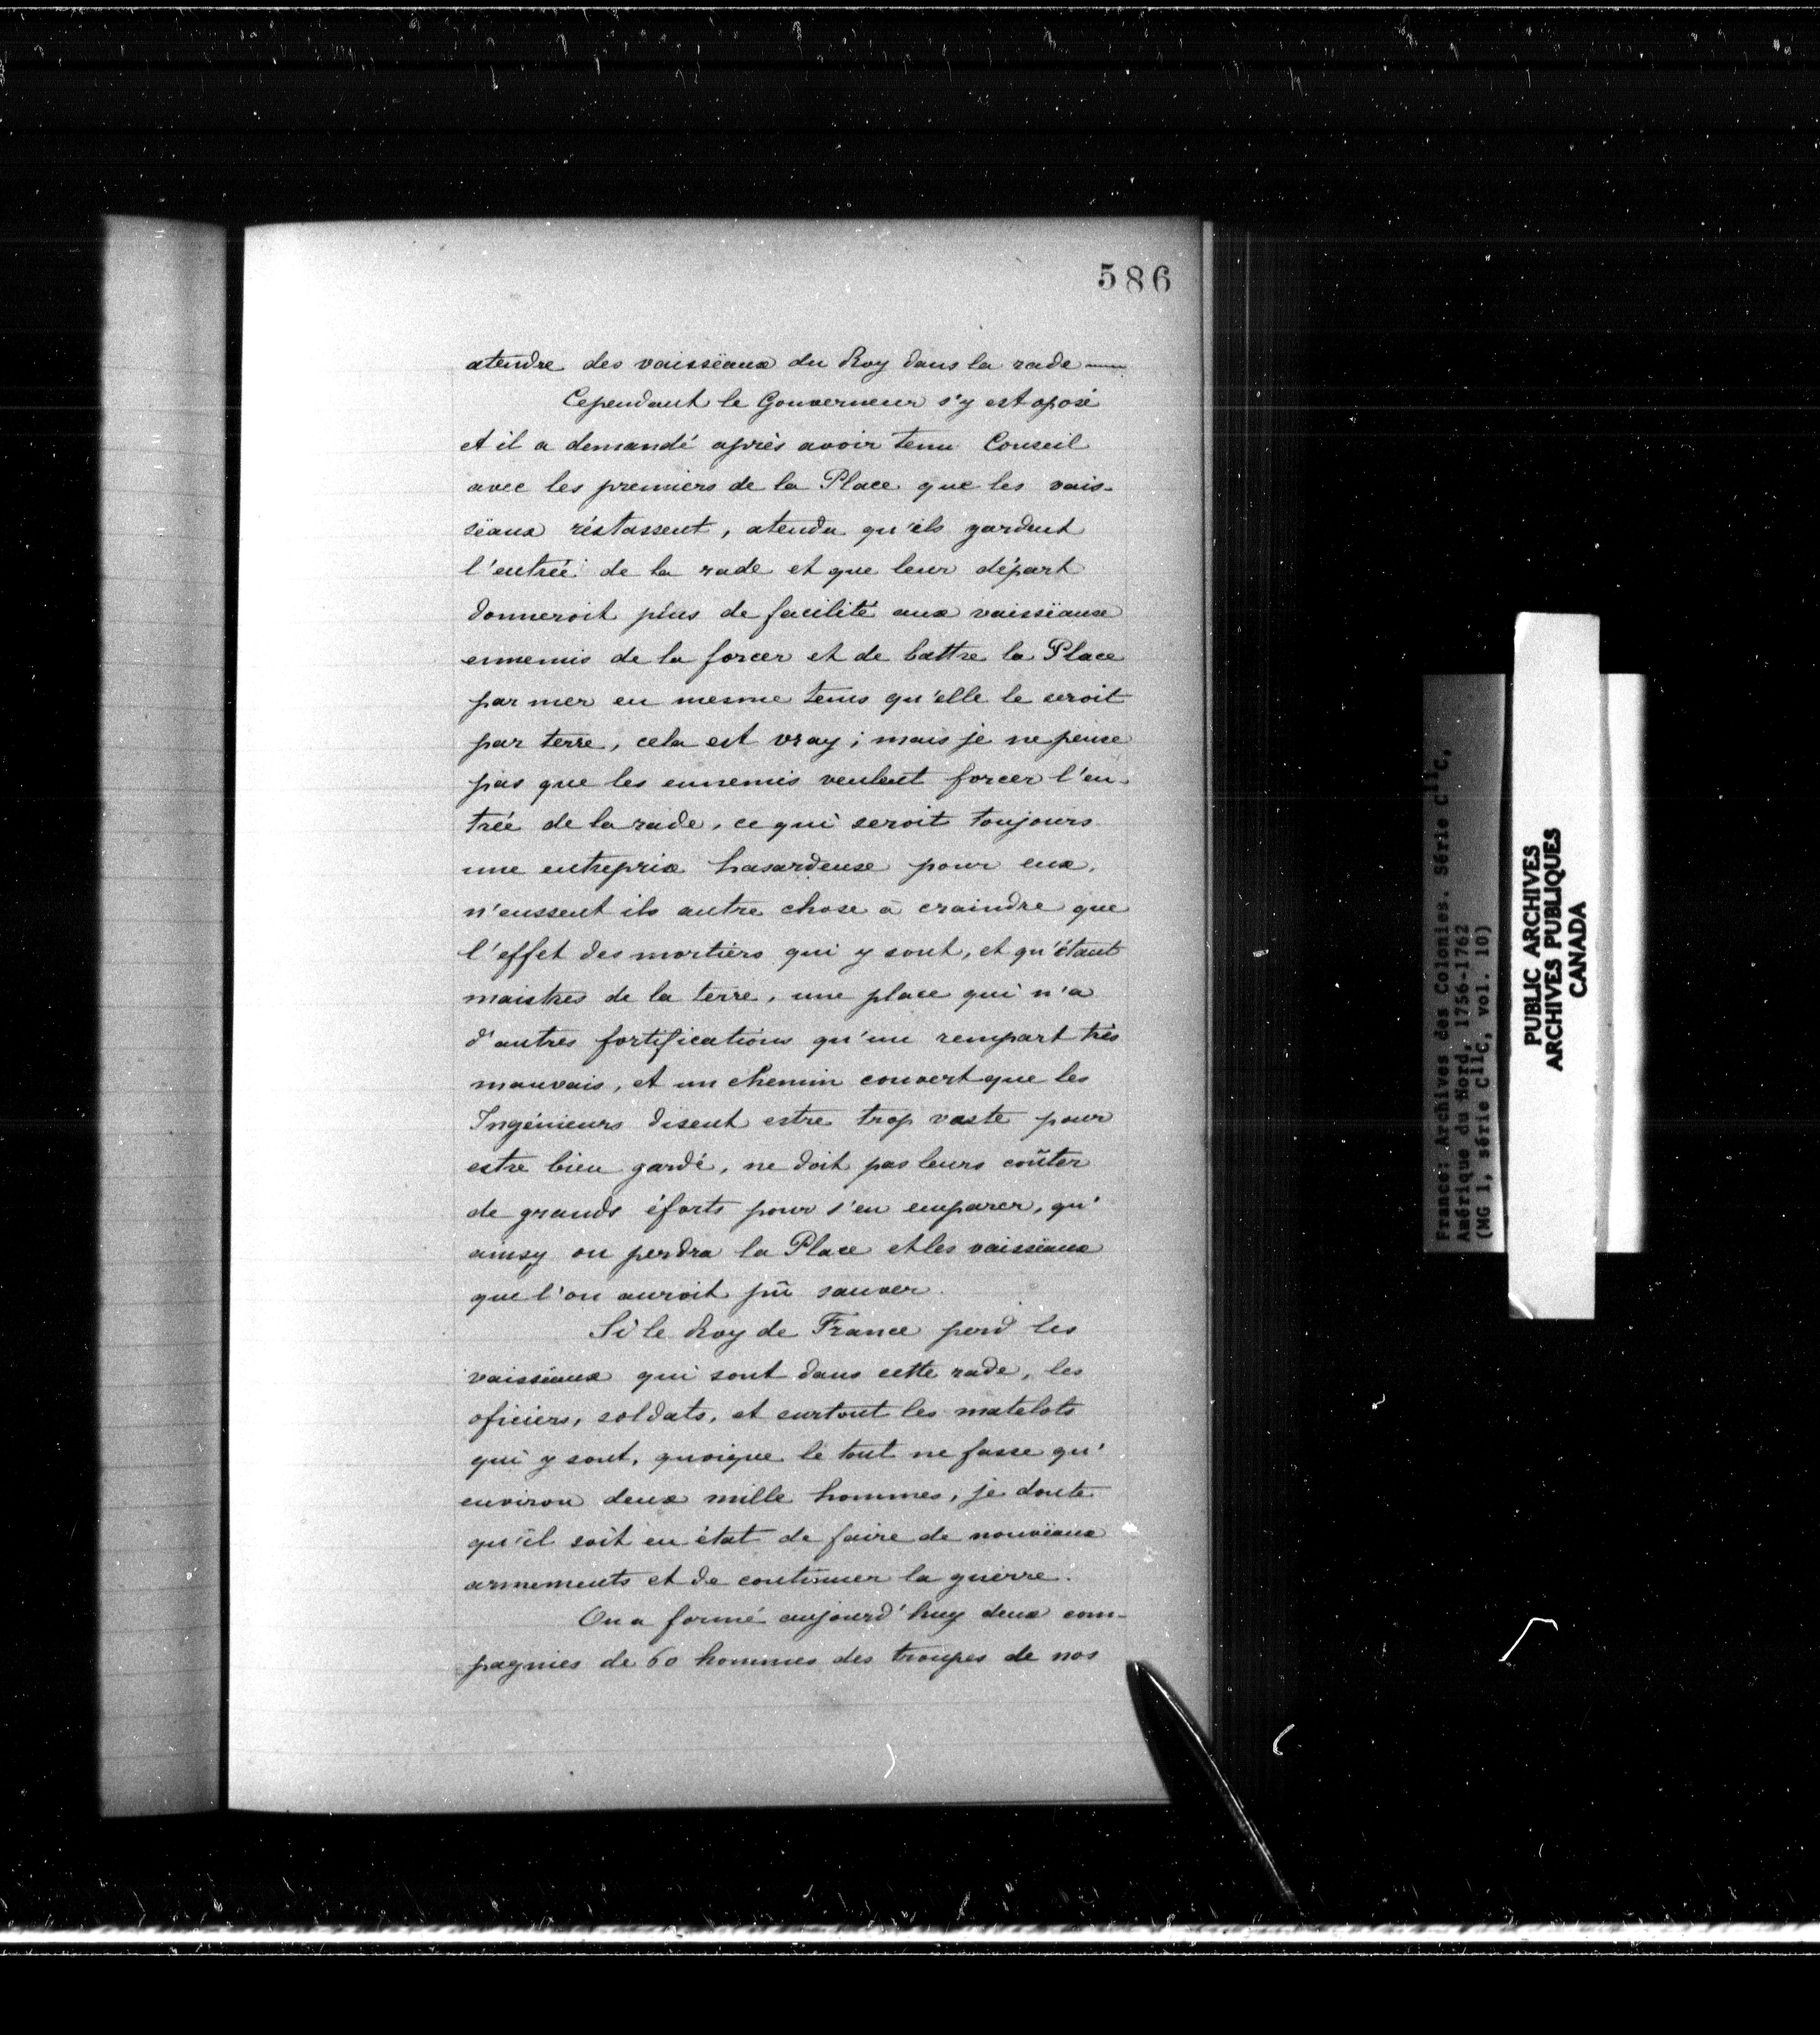 586
atendre des vaissëaux du Roy dans la rade —
Cependant le Gouverneur s'y est oposé
et il a demandé après avoir tenu Conseil
avec les premiers de la Place que les vais-
sëaux réstassent, atendu qu'ils gardent
l'entrée de la rade et que leur départ
donneroit plus de facilité aux vaissëaux
ennemis de la forcer et de battre la Place
par mer en mesme tems qu'elle le seroit
par terre, cela est vray ; mais je ne pense
pas que les ennemis veulent forcer l'en-
trée de la rade, ce qui seroit toujours
une entreprise hasardeuse pour eux,
n'eussent ils autre chose à craindre que
l'effet des mortiers qui y sont, et qu'étant
maistres de la terre, une place qui n'a
d'autres fortifications qu'un rempart très
mauvais, et un chemin couvert que les
Ingénieurs disent estre trop vaste pour
estre bien gardé, ne doit pas leurs coûter
de grands éforts pour s'en emparer, qu'
ainsy on perdra la Place et les vaissëaux
que l'on auroit pû sauver.
Si le Roy de France perd les
vaissëaux qui sont dans cette rade, les
oficiers, soldats, et surtout les matelots
qui y sont, quoique le tout ne fasse qu'
environ deux mille hommes, je doute
qu'il soit en état de faire de nouvëaux
armements et de continuer la guerre.
On a formé aujourd'huy deux com-
pagnies de 60 hommes des troupes de nos
France: Archives des Colonies. Série C11C,
Amérique du Nord, 1756-1762
(MG 1, série C11C, vol. 10)
PUBLIC ARCHIVES
ARCHIVES PUBLIQUES
CANADA